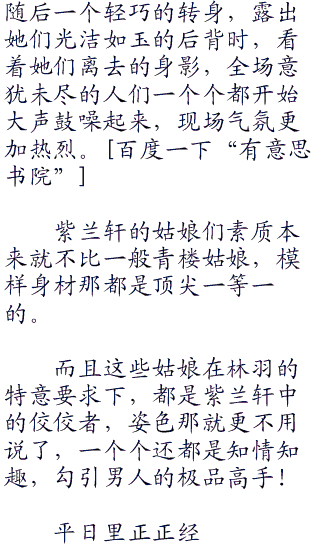 随后一个轻巧的转身，露出
她们光洁如玉的后背时，看
着她们离去的身影，全场意
犹未尽的人们一个个都开始
大声鼓噪起来，现场气氛更
加热烈。[百度一下“有意思
书院”]
紫兰轩的姑娘们素质本
来就不比一般青楼姑娘，模
样身材那都是顶尖一等一
的。
而且这些姑娘在林羽的
特意要求下，都是紫兰轩中
的佼佼者，姿色那就更不用
说了，一个个还都是知情知
趣，勾引男人的极品高手！
平日里正正经